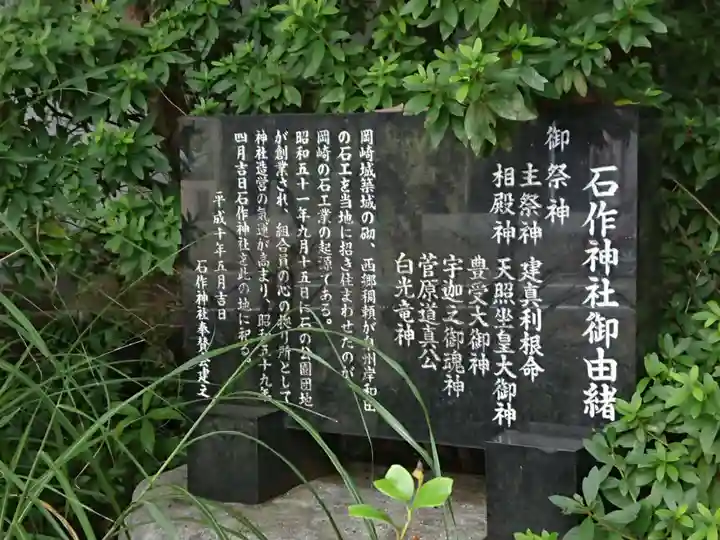 石作神社御由緒
御祭神
主祭神 建真利根命
相殿神 天照坐皇大御神
豊受大御神
宇迦之御魂神
菅原道真公
白光竜神
岡崎城築城の砌、西郷稠頼が泉州岸和田
の石工を当地に招き住まわせたのが
岡崎の石工業の起源である。
昭和五十一年九月十五日に石の公園団地
が創業され、組合員の心の拠り所として
神社造営の氣運が高まり、昭和五十九年
四月吉日石作神社を此の地に祀る。
平成十年五月吉日
石作神社奉賛 建之